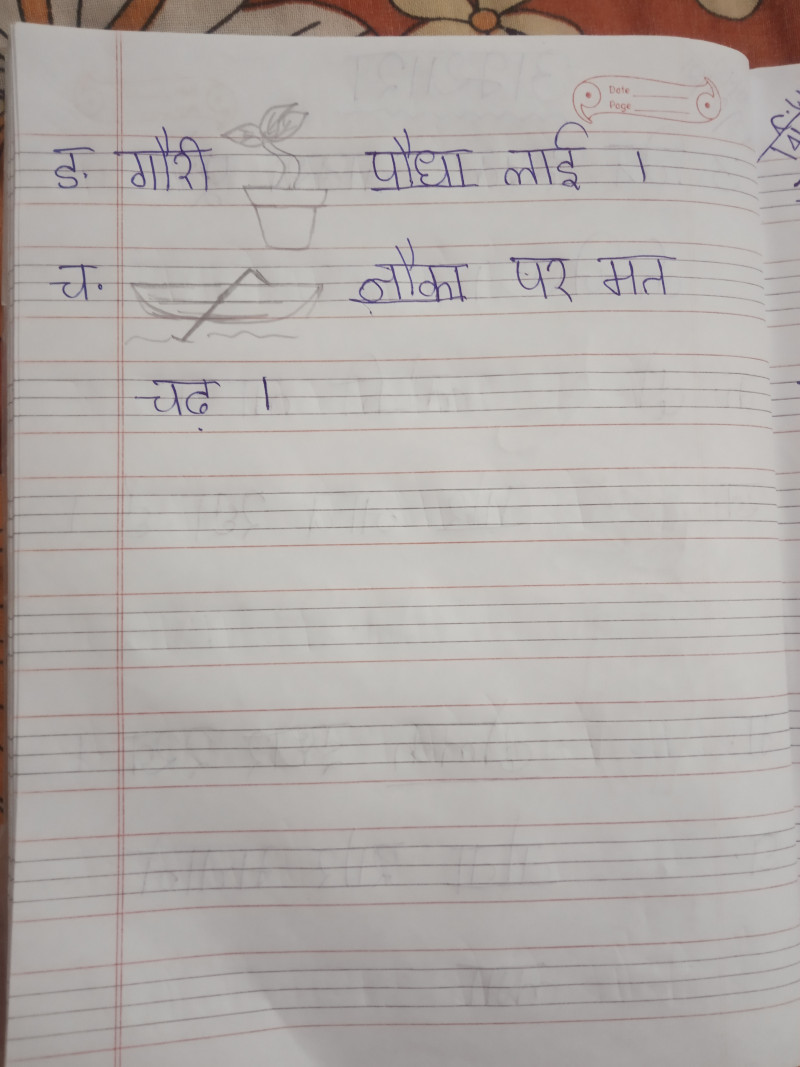 Date
Page
ङ. गौरी पौधा लाई ।
च. नौका पर मत
चढ़ ।